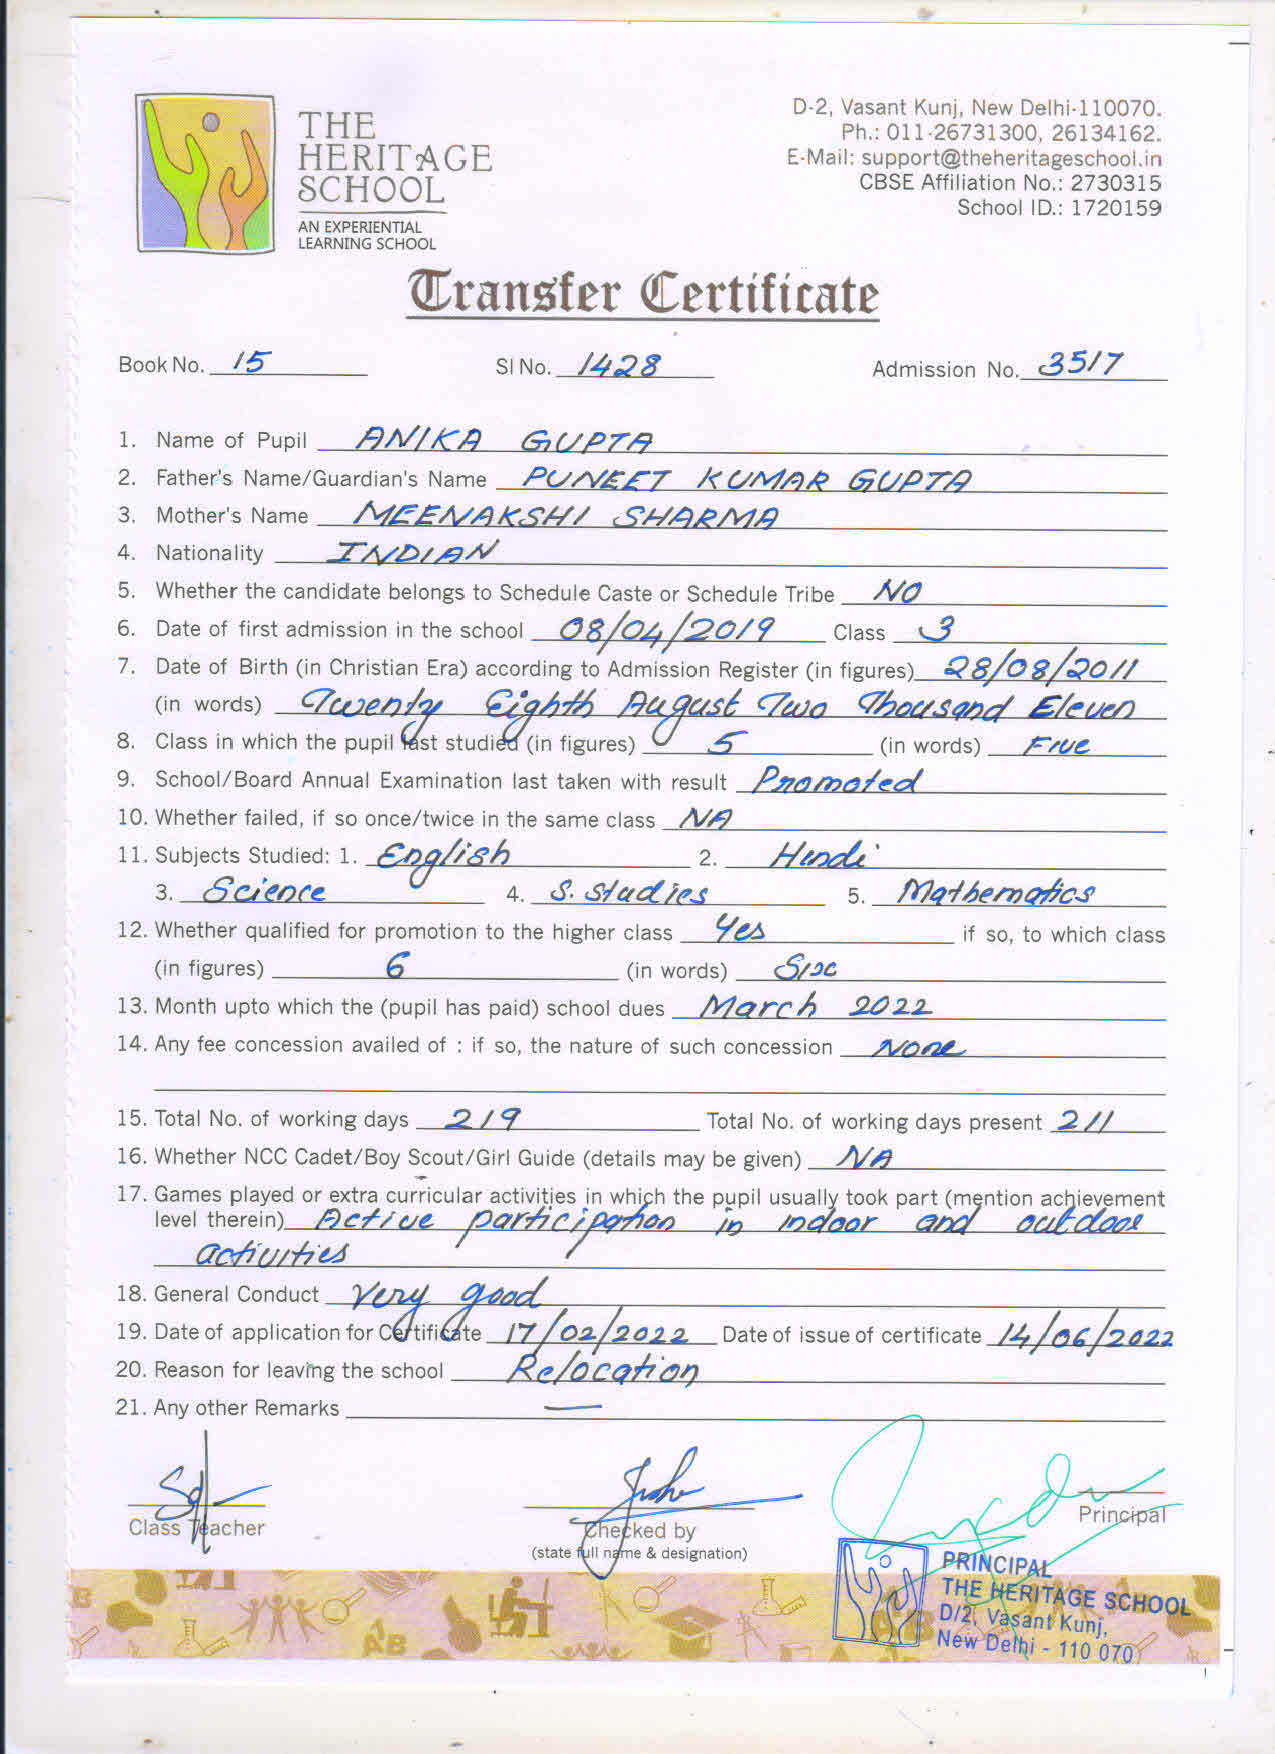 THE
HERITAGE
SCHOOL
AN EXPERIENTIAL
LEARNING SCHOOL
D-2, Vasant Kunj, New Delhi-110070.
Ph.: 011-26731300, 26134162.
E-Mail: support@theheritageschool.in
CBSE Affiliation No.: 2730315
School ID.: 1720159
Transfer Certificate
Book No. 15 Sl No. 1428 Admission No. 3517
1. Name of Pupil ANIKA GUPTA
2. Father's Name/Guardian's Name PUNEET KUMAR GUPTA
3. Mother's Name MEENAKSHI SHARMA
4. Nationality INDIAN
5. Whether the candidate belongs to Schedule Caste or Schedule Tribe NO
6. Date of first admission in the school 08/04/2019 Class 3
7. Date of Birth (in Christian Era) according to Admission Register (in figures) 28/08/2011
(in words) Twenty Eighth August Two Thousand Eleven
8. Class in which the pupil last studied (in figures) 5 (in words) Five
9. School/Board Annual Examination last taken with result Promoted
10. Whether failed, if so once/twice in the same class NA
11. Subjects Studied: 1. English 2. Hindi
3. Science 4. S. Studies 5. Mathematics
12. Whether qualified for promotion to the higher class Yes if so, to which class
(in figures) 6 (in words) Six
13. Month upto which the (pupil has paid) school dues March 2022
14. Any fee concession availed of : if so, the nature of such concession None
15. Total No. of working days 219 Total No. of working days present 211
16. Whether NCC Cadet/Boy Scout/Girl Guide (details may be given) NA
17. Games played or extra curricular activities in which the pupil usually took part (mention achievement
level therein) Active participation in indoor and outdoor
activities
18. General Conduct Very good
19. Date of application for Certificate 17/02/2022 Date of issue of certificate 14/06/2022
20. Reason for leaving the school Relocation
21. Any other Remarks —
Class Teacher Checked by Principal
(state full name & designation)
PRINCIPAL
THE HERITAGE SCHOOL
D/2, Vasant Kunj,
New Delhi - 110 070